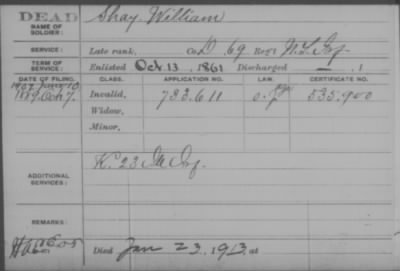 DEAD
NAME OF SOLDIER: Shay William
SERVICE: Late rank, Co. D, 69 Reg't N.Y. Inf.
TERM OF SERVICE: Enlisted Oct. 13, 1861 Discharged — , 1
DATE OF FILING. CLASS. APPLICATION NO. LAW. CERTIFICATE NO.
Invalid, 733.611 535.900
Widow,
Minor,
ADDITIONAL SERVICES: K. 23 Inf.
REMARKS:
Died Jan 23, 1913, at